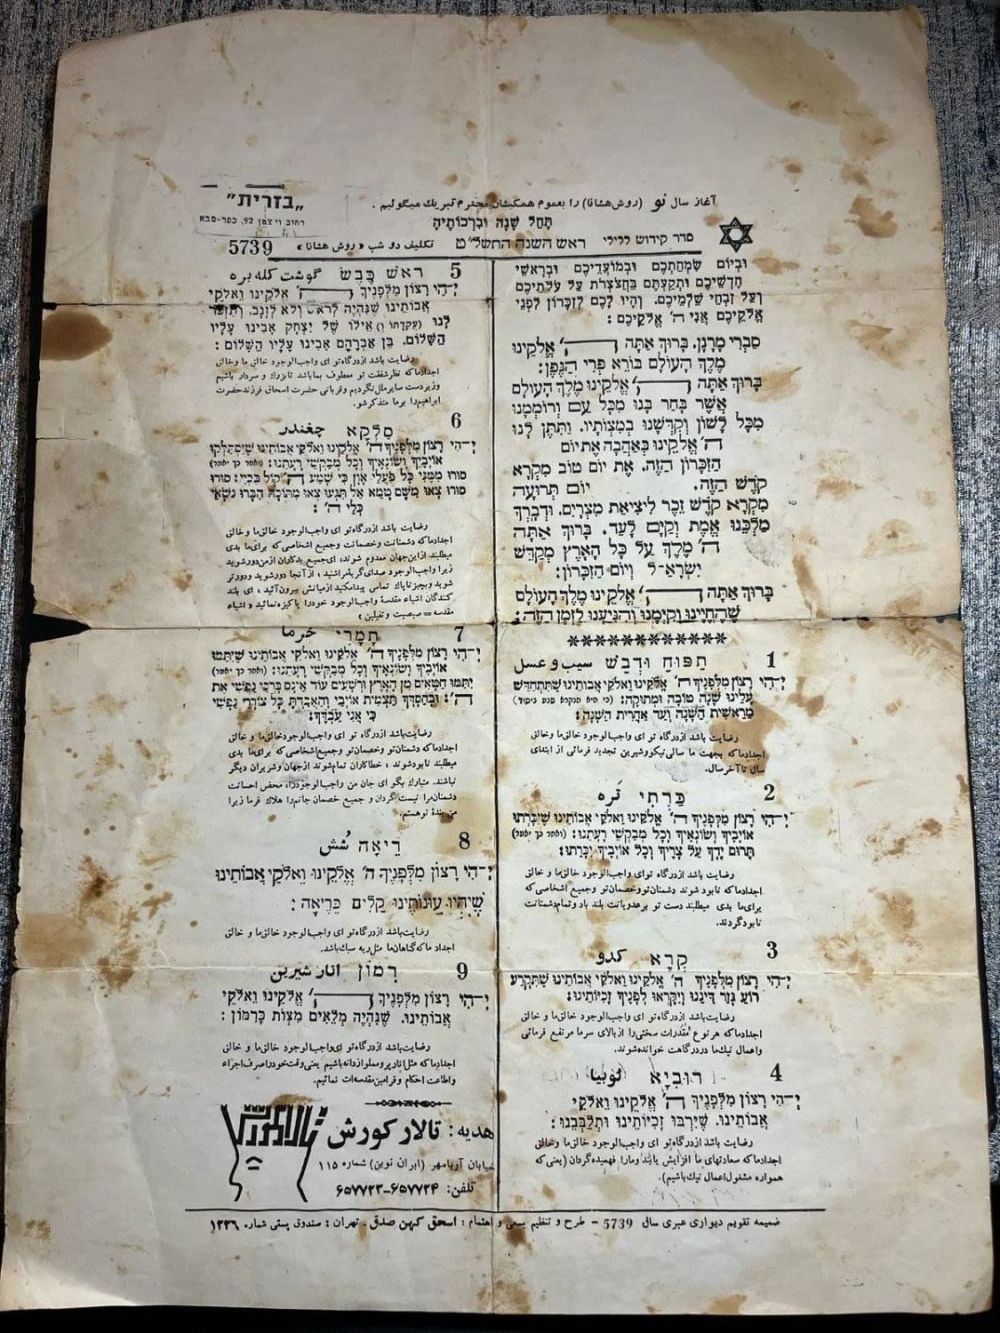 آغاز سال نو (روش هشانا) را بعموم همکیشان محترم تبریک میگوئیم .
„בזרית"
רחוב ויצמן 92, כפר-סבא
תָּחֵל שָׁנָה וּבִרְכוֹתֶיהָ
סדר קידוש ללילי ראש השנה התשל"ט تکلیف دو شب « روش هشانا » 5739
וּבְיוֹם שִׂמְחַתְכֶם וּבְמוֹעֲדֵיכֶם וּבְרָאשֵׁי
חָדְשֵׁיכֶם וּתְקַעְתֶּם בַּחֲצֹצְרֹת עַל עֹלֹתֵיכֶם
וְעַל זִבְחֵי שַׁלְמֵיכֶם. וְהָיוּ לָכֶם לְזִכָּרוֹן לִפְנֵי
אֱלֹקֵיכֶם אֲנִי ה' אֱלֹקֵיכֶם:
סַבְרִי מָרָנָן. בָּרוּךְ אַתָּה ה' אֱלֹקֵינוּ
מֶלֶךְ הָעוֹלָם בּוֹרֵא פְּרִי הַגֶּפֶן:
בָּרוּךְ אַתָּה ה' אֱלֹקֵינוּ מֶלֶךְ הָעוֹלָם
אֲשֶׁר בָּחַר בָּנוּ מִכָּל עַם וְרוֹמְמָנוּ
מִכָּל לָשׁוֹן וְקִדְּשָׁנוּ בְּמִצְוֹתָיו. וַתִּתֶּן לָנוּ
ה' אֱלֹקֵינוּ בְּאַהֲבָה אֶת יוֹם
הַזִּכָּרוֹן הַזֶּה. אֶת יוֹם טוֹב מִקְרָא
קֹדֶשׁ הַזֶּה. יוֹם תְּרוּעָה
מִקְרָא קֹדֶשׁ זֵכֶר לִיצִיאַת מִצְרָיִם. וּדְבָרְךָ
מַלְכֵּנוּ אֱמֶת וְקַיָּם לָעַד. בָּרוּךְ אַתָּה
ה' מֶלֶךְ עַל כָּל הָאָרֶץ מְקַדֵּשׁ
יִשְׂרָאֵ-ל וְיוֹם הַזִּכָּרוֹן:
בָּרוּךְ אַתָּה ה' אֱלֹקֵינוּ מֶלֶךְ הָעוֹלָם
שֶׁהֶחֱיָינוּ וְקִיְּמָנוּ וְהִגִּיעָנוּ לַזְּמַן הַזֶּה:
************
1 תַּפּוּחַ וּדְבַשׁ سیب و عسل
יְ-הִי רָצוֹן מִלְּפָנֶיךָ ה' אֱלֹקֵינוּ וֵאלֹקֵי אֲבוֹתֵינוּ שֶׁתִּתְחַדֵּשׁ
עָלֵינוּ שָׁנָה טוֹבָה וּמְתוּקָה:
מֵרֵאשִׁית הַשָּׁנָה וְעַד אַחֲרִית הַשָּׁנָה:
رضایت باشد از درگاه تو ای واجب الوجود خالق ما و خالق
اجداد ما که بجهت ما سالی نیکو و شیرین تجدید فرمائی از ابتدای
سال تا آخر سال.
2 כַּרְתֵּי تره
יְ-הִי רָצוֹן מִלְּפָנֶיךָ ה' אֱלֹקֵינוּ וֵאלֹקֵי אֲבוֹתֵינוּ שֶׁיִּכָּרְתוּ
אוֹיְבֶיךָ וְשׂוֹנְאֶיךָ וְכָל מְבַקְשֵׁי רָעָתֵנוּ: (ואחר כך יאמר)
תָּרוֹם יָדְךָ עַל צָרֶיךָ וְכָל אוֹיְבֶיךָ יִכָּרֵתוּ:
رضایت باشد از درگاه تو ای واجب الوجود خالق ما و خالق
اجداد ما که نابود شوند دشمنان تو و خصمان تو و جمیع اشخاصی که
برای ما بدی میطلبند دست تو بر عدویانت بلند باد و تمام دشمنانت
نابود گردند.
3 קָרָא کدو
יְ-הִי רָצוֹן מִלְּפָנֶיךָ ה' אֱלֹקֵינוּ וֵאלֹקֵי אֲבוֹתֵינוּ שֶׁתִּקְרַע
רוֹעַ גְּזַר דִּינֵנוּ וְיִקָּרְאוּ לְפָנֶיךָ זְכִיּוֹתֵינוּ:
رضایت باشد از درگاه تو ای واجب الوجود خالق ما و خالق
اجداد ما که هر نوع مقدرات سختی را از بالای سر ما مرتفع فرمائی
و اعمال نیک ما در درگاهت خوانده شوند.
4 רוּבְיָא لوبیا
יְ-הִי רָצוֹן מִלְּפָנֶיךָ ה' אֱלֹקֵינוּ וֵאלֹקֵי
אֲבוֹתֵינוּ. שֶׁיִּרְבּוּ זְכִיּוֹתֵינוּ וּתְלַבְּבֵנוּ:
رضایت باشد از درگاه تو ای واجب الوجود خالق ما و خالق
اجداد ما که سعادتهای ما افزایش یابد و ما را فهمیده گردان (یعنی که
همواره مشغول اعمال نیک باشیم).
5 רֹאשׁ כֶּבֶשׂ گوشت کله بره
יְ-הִי רָצוֹן מִלְּפָנֶיךָ ה' אֱלֹקֵינוּ וֵאלֹקֵי
אֲבוֹתֵינוּ שֶׁנִּהְיֶה לְרֹאשׁ וְלֹא לְזָנָב. וְתִזְכֹּר
לָנוּ (עקדתו ו) אֵילוֹ שֶׁל יִצְחָק אָבִינוּ עָלָיו
הַשָּׁלוֹם. בֶּן אַבְרָהָם אָבִינוּ עָלָיו הַשָּׁלוֹם:
رضایت باشد از درگاه تو ای واجب الوجود خالق ما و خالق
اجداد ما که نظر شفقت تو معطوف بما باشد تا بزرگ و سردار باشیم
و زیر دست سایر ملل نگردیم و قربانی حضرت اسحاق فرزند حضرت
ابراهیم را بر ما متذکر شو.
6 סִלְקָא چغندر
יְ-הִי רָצוֹן מִלְּפָנֶיךָ ה' אֱלֹקֵינוּ וֵאלֹקֵי אֲבוֹתֵינוּ שֶׁיִּסְתַּלְּקוּ
אוֹיְבֶיךָ וְשׂוֹנְאֶיךָ וְכָל מְבַקְשֵׁי רָעָתֵנוּ: (ואחר כך יאמר)
סוּרוּ מִמֶּנִּי כָּל פֹּעֲלֵי אָוֶן כִּי שָׁמַע ה' קוֹל בִּכְיִי: סוּרוּ
סוּרוּ צְאוּ מִשָּׁם טָמֵא אַל תִּגָּעוּ צְאוּ מִתּוֹכָהּ הִבָּרוּ נֹשְׂאֵי
כְּלֵי ה':
رضایت باشد از درگاه تو ای واجب الوجود خالق ما و خالق
اجداد ما که دشمنانت و خصمانت و جمیع اشخاصی که برای ما بدی
میطلبند از این جهان معدوم شوند، ای جمیع بدکاران از من دور شوید
زیرا واجب الوجود صدای گریه مرا شنید ، از آنجا دور شوید و دورتر
شوید و بچیز ناپاک تماس پیدا مکنید از میانش بیرون آئید ، ای بلند
کنندگان اشیاء مقدسهٔ واجب الوجود خود را پاکیزه نمائید « اشیاء
مقدسه = صیصیت و تفیلین »
7 תַּמְרֵי خرما
יְ-הִי רָצוֹן מִלְּפָנֶיךָ ה' אֱלֹקֵינוּ וֵאלֹקֵי אֲבוֹתֵינוּ שֶׁיִּתַּמּוּ
אוֹיְבֶיךָ וְשׂוֹנְאֶיךָ וְכָל מְבַקְשֵׁי רָעָתֵנוּ: (ואחר כך יאמר)
יִתַּמּוּ חַטָּאִים מִן הָאָרֶץ וּרְשָׁעִים עוֹד אֵינָם בָּרְכִי נַפְשִׁי אֶת
ה': וּבְחַסְדְּךָ תַּצְמִית אוֹיְבַי וְהַאֲבַדְתָּ כָּל צוֹרְרֵי נַפְשִׁי
כִּי אֲנִי עַבְדֶּךָ:
رضایت باشد از درگاه تو ای واجب الوجود خالق ما و خالق
اجداد ما که دشمنان تو و خصمان تو و جمیع اشخاصی که برای ما بدی
میطلبند نابود شوند ، خطاکاران تمام شوند از جهان و شریران دیگر
نباشند. متبارک بگو ای جان من واجب الوجود را، محض احسانت
دشمنان مرا نیست گردان و جمیع خصمان جانم را هلاک فرما زیرا
من بندهٔ تو هستم.
8 רֵיאָה شُش
יְ-הִי רָצוֹן מִלְּפָנֶיךָ ה' אֱלֹקֵינוּ וֵאלֹקֵי אֲבוֹתֵינוּ
שֶׁיִּהְיוּ עֲוֹנוֹתֵינוּ קַלִּים כָּרֵיאָה:
رضایت باشد از درگاه تو ای واجب الوجود خالق ما و خالق
اجداد ما که گناهان ما مثل ریه سبک باشد.
9 רִמּוֹן انار شیرین
יְ-הִי רָצוֹן מִלְּפָנֶיךָ ה' אֱלֹקֵינוּ וֵאלֹקֵי
אֲבוֹתֵינוּ. שֶׁנִּהְיֶה מְלֵאִים מִצְוֹת כָּרִמּוֹן:
رضایت باشد از درگاه تو ای واجب الوجود خالق ما و خالق
اجداد ما که مثل انار پر و مملو از دانه باشیم یعنی وقت خود را صرف اجراء
و اطاعت احکام و فرامین مقدسه ات نمائیم.
هدیه: تالار کورش
خیابان آریامهر (ایران نوین) شماره ۱۱۵
تلفن: ۶۵۷۷۲۴-۶۵۷۷۲۳
ضمیمه تقویم دیواری عبری سال 5739 - طرح و تنظیم بسعی و اهتمام : اسحق کهن صدق - تهران : صندوق پستی شماره ۱۲۲۶